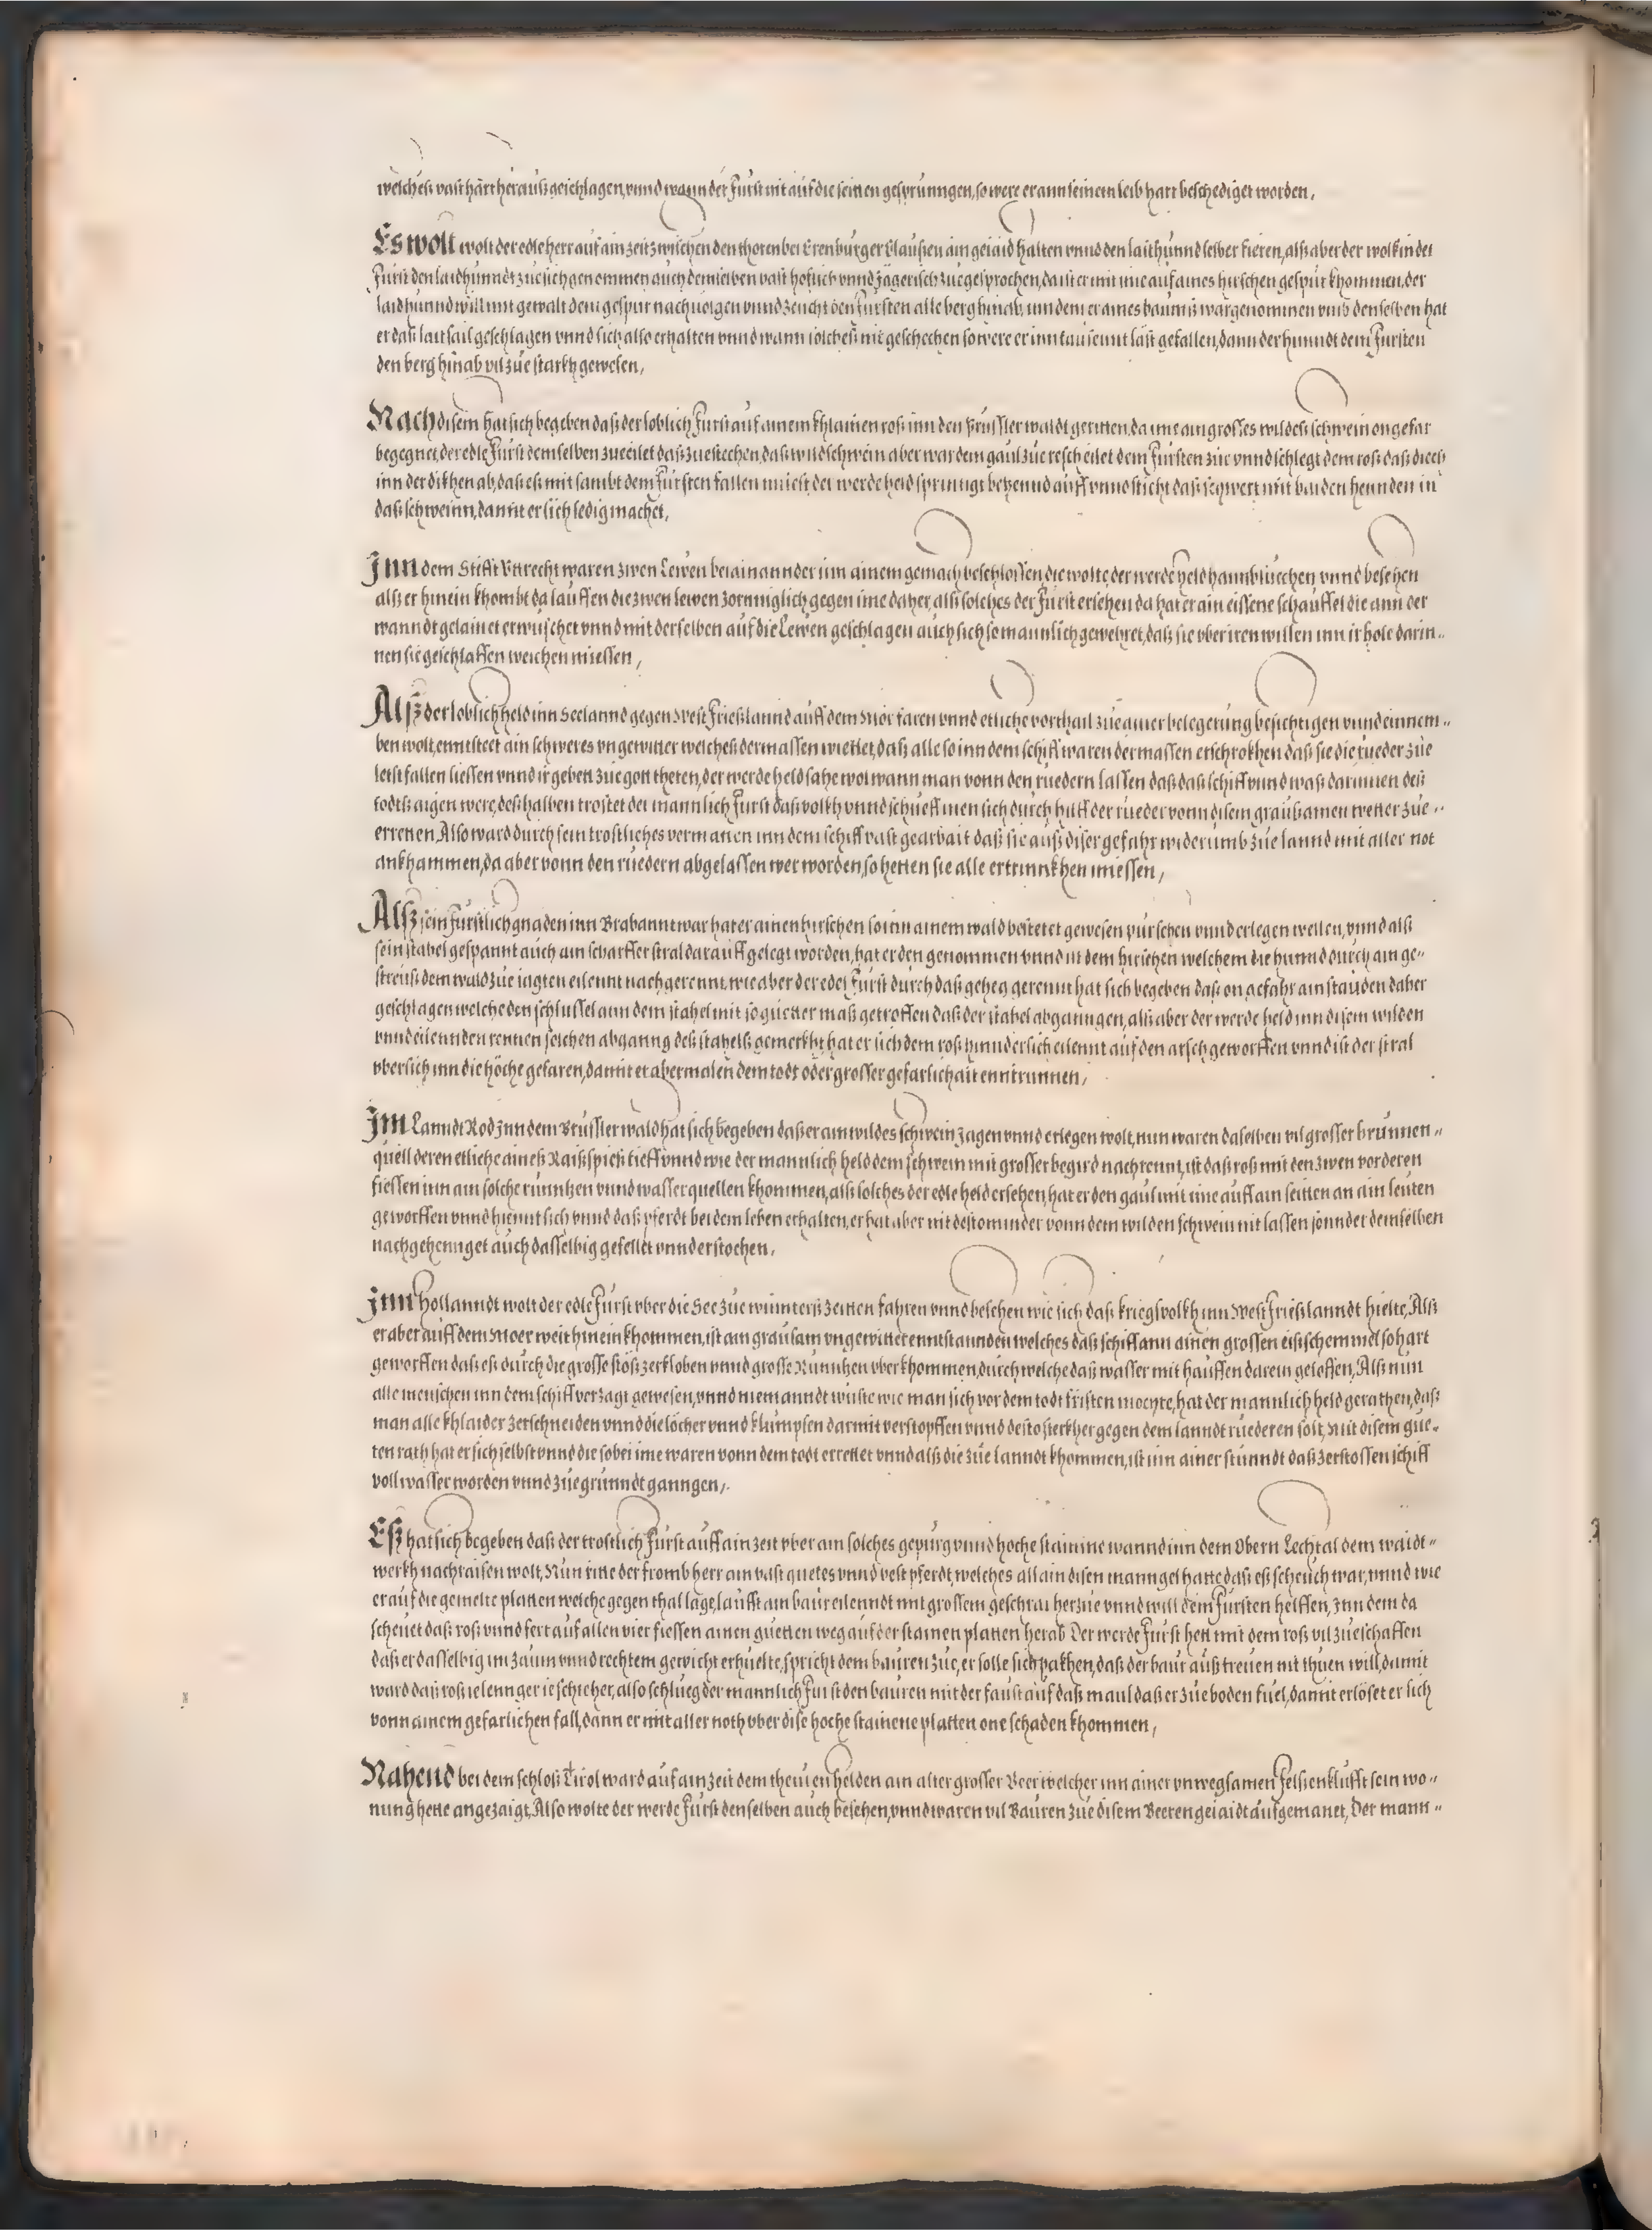 welches vast hart herauß geschlagen, vnnd wann der Fürst nit auf die seinen gesprunngen, so were er ann seinem leib hart beschediget worden,
Es wolt wolt der edle herr auf ain zeit zwischen den thoren bei Erenburger Klaußen ain geiaid halten vnnd den laithunnd selber fieren, alß aber der wolkindet
Fürst den laidhunndt zu sich genommen auch demselben vast hoflich vnnd Jägerisch zuegesprochen, da ist er mit ime auf aines hirschen gespur khommen, der
laidhunnd will mit gewalt dem gespur nachuolgen vnnd zeucht den Fursten alle berg hinab, inn dem er aines baumß wargenommen vmb denselben hat
er daß laitsail geschlagen vnnd sich also erhalten vnnd wann solches nit geschechen so were er inn tausennt läst gefallen, dann der hunndt dem Fursten
den berg hinab vil züe starkh gewesen,
Nach disem hat sich begeben daß der loblich Fürst auf ainem khlainen roß inn den Prüssler waldt geritten, da ime ain grosses wildeß schwein ongefar
begegnet, der edle Fürst demselben zueeilet daß zuestechen, daß wildschwein aber war dem gaul zue resch eilet dem Fürsten züe vnnd schlegt dem roß daß diech
inn der dikhen ab, daß eß mit sambt dem Fürsten fallen miest, der werde held springt behennd auff vnnd sticht daß schwert mit baiden hennden in
daß schweinn, damit er sich ledig machet,
Inn dem Stifft Vtrecht waren zwen Lewen bei ainannder inn ainem gemach beschlossen, die wolte der werde held hannblüechen vnnd besehen
alß er hinein khombt da lauffen die zwen lewen zornniglich gegen ime daher, alß solches der Fürst ersehen da hat er ain eissene schauffel die ann der
wanndt gelainet erwüschet vnnd mit derselben auf die Lewen geschlagen auch sich so mannlich gewehret, daß sie vber iren willen inn ir hole darin-
nen sie geschlaffen weichen miessen,
Alß der loblich held inn Seelannd gegen West Frießlannd auff dem Moer faren vnnd etliche vorthail zue ainer belegerung besichtigen vnnd einnem-
ben wolt, enntsteet ain schweres vngewitter welches dermassen wiettet, daß alle so inn dem schiff waren dermassen erschrokhen daß sie die rueder züe
letst fallen liessen vnnd ir gebett züe gott theten, der werde held sahe wol wann man vonn den ruedern lassen daß daß schiff vnnd waß darinnen deß
todtß aigen were, deßhalben trostet der mannlich Fürst daß volkh vnnd schueff inen sich durch hilff der rueder vonn disem grausamen wetter züe-
erretten, Also ward durch sein trostliches vermanen inn dem schiff vast gearbait daß sie auß diser gefahr widerumb züe lannd mit aller not
ankhammen, da aber vonn den ruedern abgelassen wer worden, so hetten sie alle ertrinnkhen miessen,
Alß sein Furstlich gnaden inn Brabannt war hat er ainen hirschen so inn ainem wald bestetet gewesen pürschen vnnd erlegen wellen, vnnd alß
sein stahel gespannt auch ain scharffer stral darauff gelegt worden, hat er den genommen vnnd ist dem hirschen welchem die hunnd durch ain ge-
streuß dem wald züe iagten eilennt nachgerennt, wie aber der edel Fürst durch daß geheg gerennt hat sich begeben daß ongefahr ain stauden daher
geschlagen welche den schlussel ann dem stahel mit so guetter maß getroffen daß der stahel abganngen, alß aber der werde held inn disem wilden
vnnd eilennden rennen solchen abganng deß stahelß gemerkht hat er sich dem roß hinndersich eilennt auf den arsch geworffen vnnd ist der stral
vbersich inn die höche gefaren, damit er abermalen dem todt oder grosser gefarlichait enntrunnen,
Im Lanndt Rod Inn dem Brüssler wald hat sich begeben daß er ain wildes schwein Jagen vnnd erlegen wolt, nun waren daselben vil grosser brunnen-
quell deren etliche aineß Raißspieß tieff vnnd wie der mannlich held dem schwein mit grosser begird nachrennt, ist daß roß mit den zwen vorderen
fiessen inn ain solche runntzen vnnd wasserquellen khommen, alß solches der edle held ersehen, hat er den gaul mit ime auff ain seitten an ain leuten
geworffen vnnd hiemit sich vnnd daß pferdt bei dem leben erhalten, er hat aber nit destominder vonn dem wilden schwein nit lassen sonnder demselben
nachgehennget auch dasselbig gefellet vnnd erstochen,
Inn Hollanndt wolt der edle Fürst vber die See züe winnterß zeitten fahren vnnd besehen wie sich daß kriegsvolkh inn West Frießlanndt hielte, Alß
er aber auff dem Moer weit hinein khommen, ist ain grausam vngewitter enntstannden welches daß schiff ann ainen grossen eißschemmel so hart
geworffen daß eß durch die grosse stöß zerkloben vnnd grosse Runntzen vberkhommen, durch welche daß wasser mit hauffen darein geloffen, Alß nun
alle menschen inn dem schiff verzagt gewesen, vnnd niemanndt wuste wie man sich vor dem todt fristen mochte, hat der mannlich held gerathen, daß
man alle khlaider zerschneiden vnnd die löcher vnnd klumpsen darmit verstopffen vnnd desto sterkher gegen dem lanndt ruederen solt, Mit disem gue-
ten rath hat er sich selbst vnnd die so bei ime waren vonn dem todt errettet vnnd alß die züe lanndt khommen, ist inn ainer stunndt daß zerstossen schiff
voll wasser worden vnnd züe grunndt ganngen,
Eß hat sich begeben daß der trostlich Fürst auff ain zeit vber ain solches gepurg vnnd hoche stainine wannd inn dem Obern Lechtal dem waidt-
werkh nachraisen wolt, Nun ritte der fromb herr ain vast guetes vnnd vest pferdt, welches allain disen manngel hatte daß eß scheuch war, vnnd wie
er auf die gemelte platten welche gegen thal läge, laufft ain baur eilenndt mit grossem geschrai herzue vnnd will dem Fursten helffen, Inn dem da
scheuet daß roß vnnd fert auf allen vier fiessen ainen guetten weg auf der stainen platten herab Der werde Fürst hett mit dem roß vil zueschaffen
daß er dasselbig im zaum vnnd rechtem gewicht erhuelte, spricht dem bauren zue, er solle sich pakhen, daß der baur auß treuen nit thuen will, damit
ward daß roß ie lennger ie schieher, also schlueg der mannlich Furst den bauren mit der faust auf daß maul daß er züe boden fuel, damit erlöset er sich
vonn ainem gefarlichen fall, dann er mit aller noth vber dise hoche stainene platten one schaden khommen,
Nahend bei dem schloß Tirol ward auf ain zeit dem theuren helden ain alter grosser Beer welcher inn ainer vnwegsamen felßenklufft sein wo-
nung hette angezaigt, Also wolte der werde Fürst denselben auch besehen, vnnd waren vil Bauren züe disem Beerengeiaidt aufgemanet, Der mann-